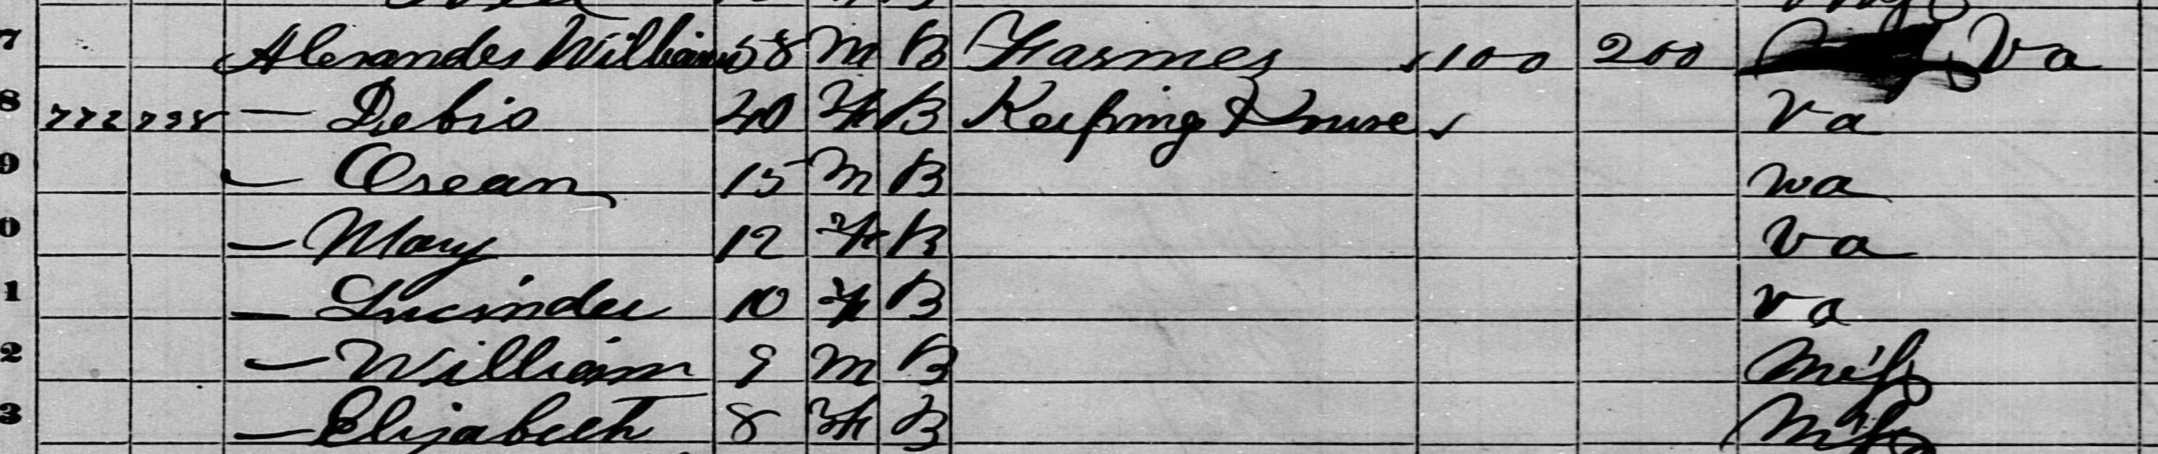 7 Alexander William 58 M B Farmer 100 200 Va
8 772 798 — Debio 40 F B Keeping House ✓ Va
9 — Osean 15 M B wa
0 — Mary 12 F B Va
1 — Lucinder 10 F B Va
2 — William 9 M B Miss
3 — Elizabeth 8 F B Miss